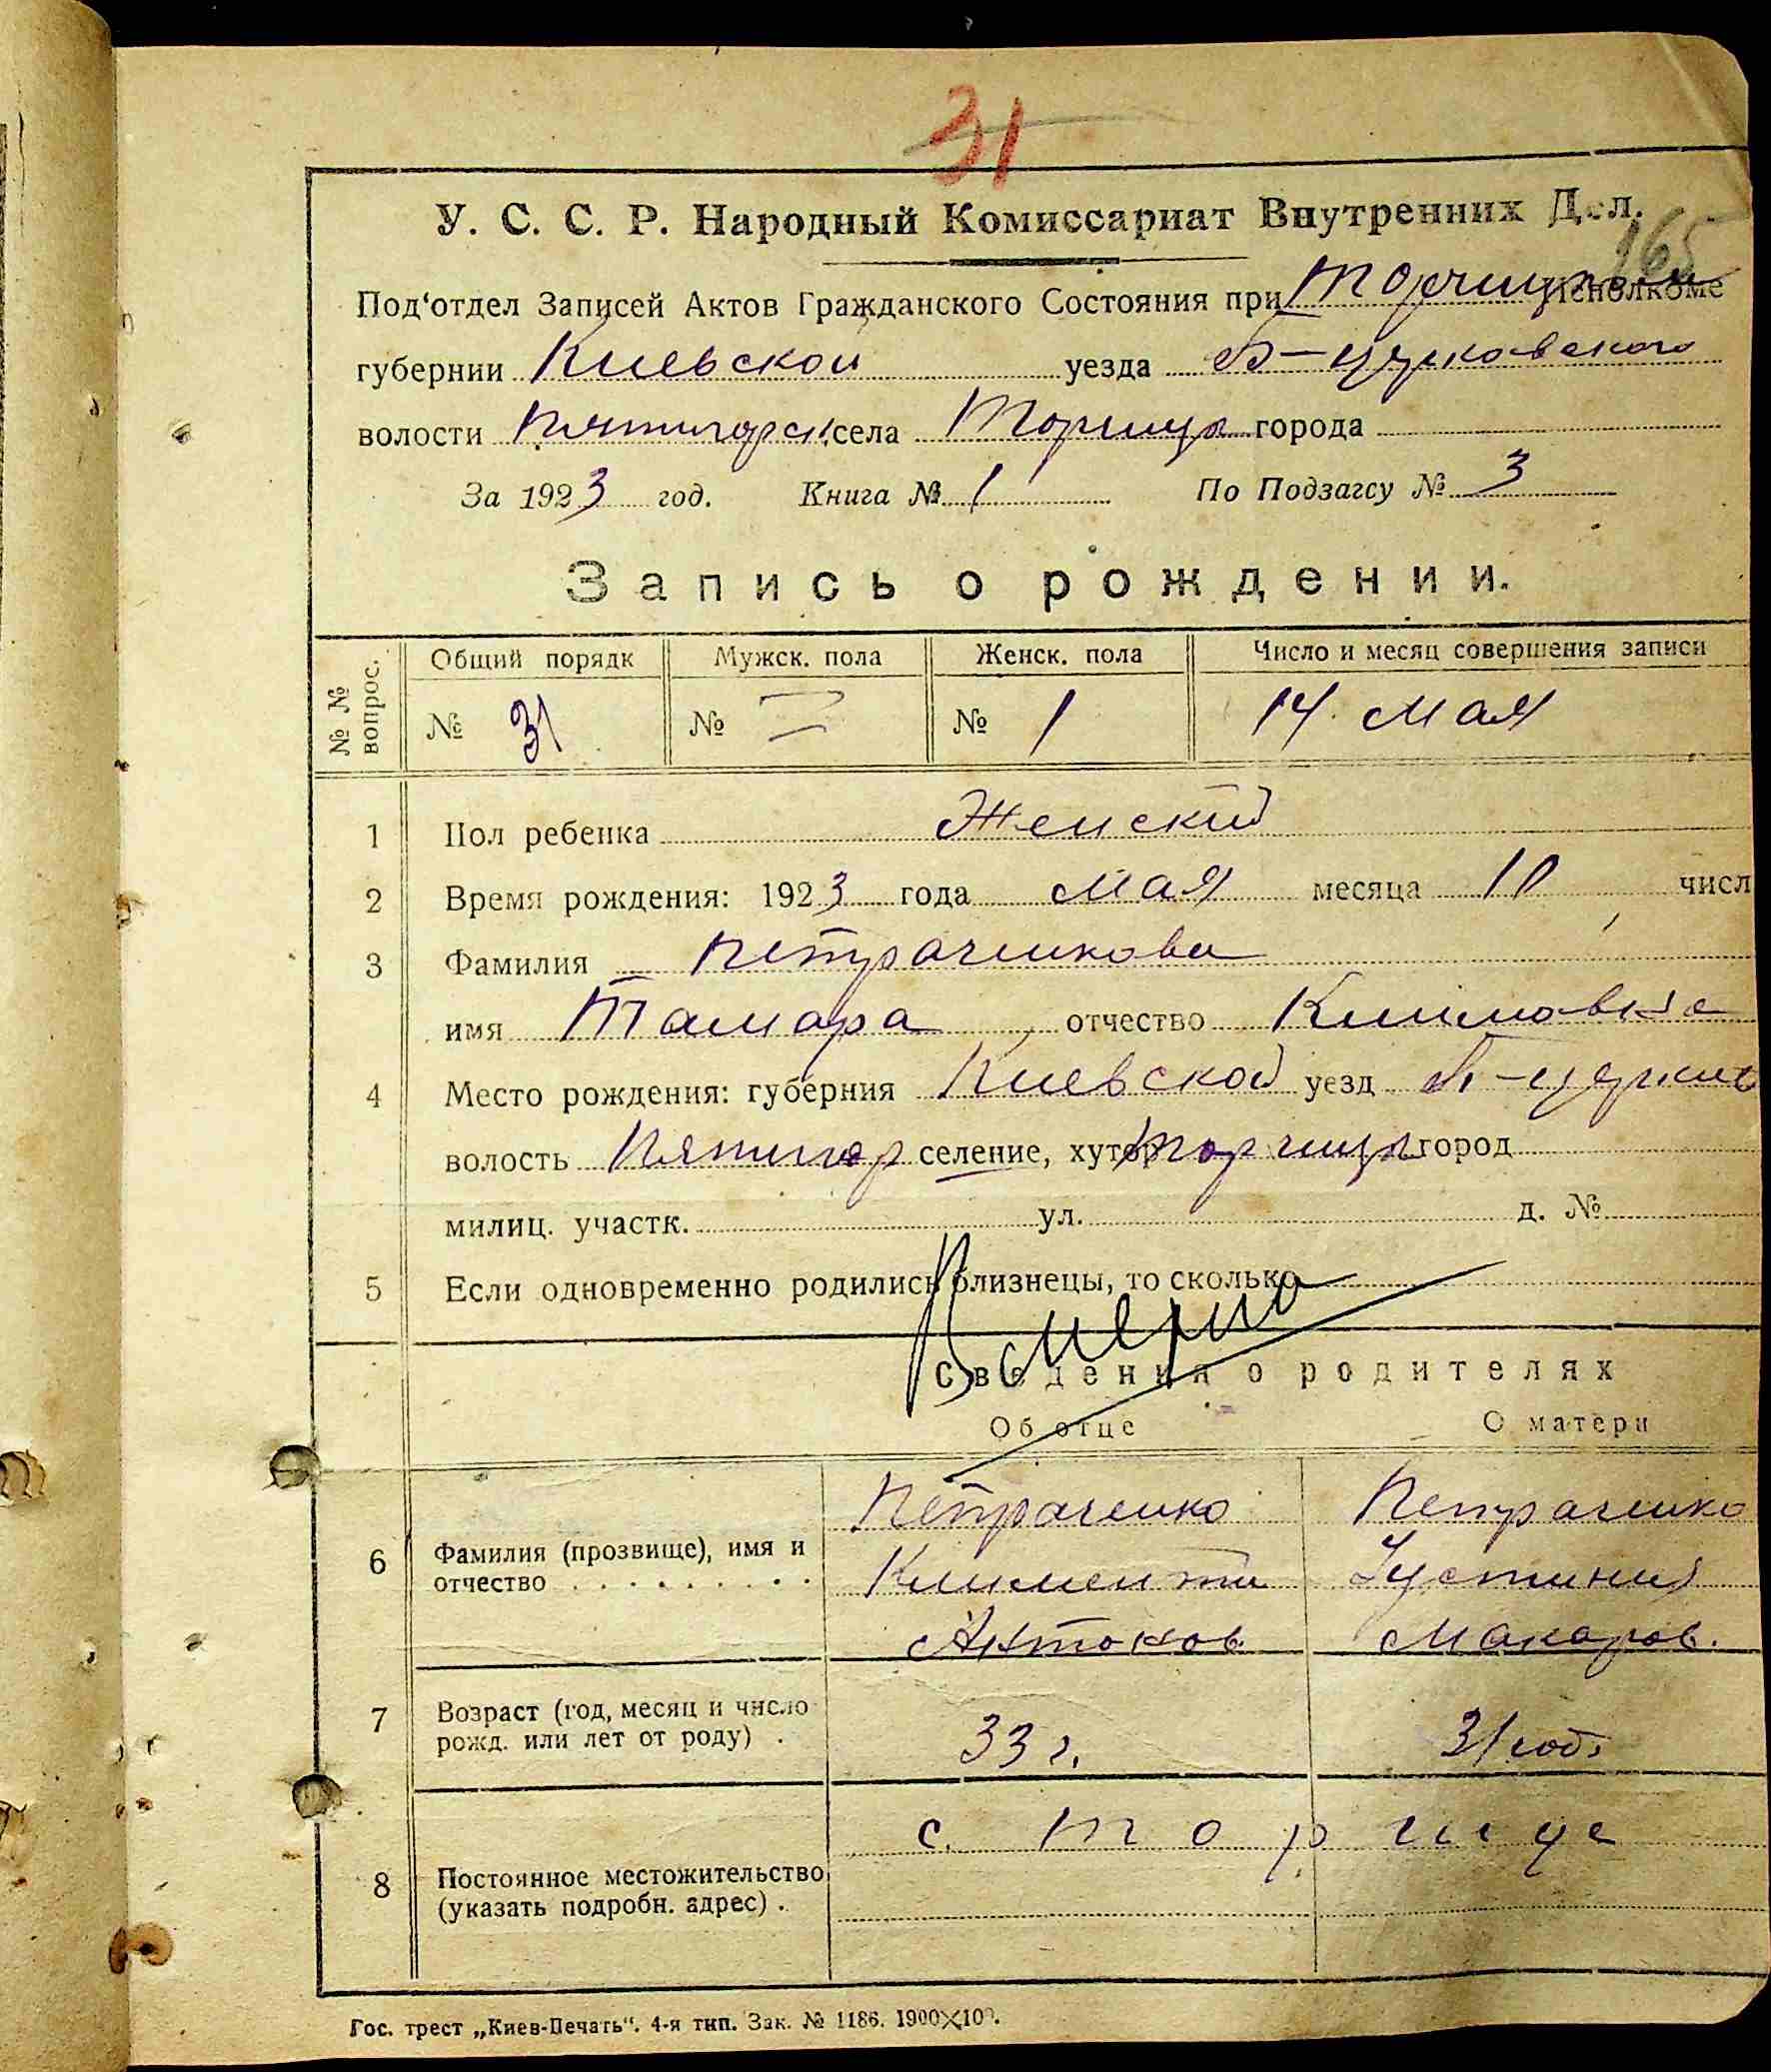 31
У. С. С. Р. Народный Комиссариат Внутренних Дел.
165
Под‘отдел Записей Актов Гражданского Состояния при Торчицком Исполкоме
губернии Киевской уезда Б-церковского
волости Пятигорск. села Торчицы города
За 1923 год. Книга № 1 По Подзагсу № 3
Запись о рождении.
№ № вопрос. Общий порядк Мужск. пола Женск. пола Число и месяц совершения записи
№ 31 № — № 1 14 мая
1 Пол ребенка Женский
2 Время рождения: 1923 года мая месяца 10 числ
3 Фамилия Петраченкова
имя Тамара отчество Климовна
4 Место рождения: губерния Киевской уезд Б-церков
волость Пятигор селение, хутор Торчицы город
милиц. участк. ул. д. №
5 Если одновременно родились близнецы, то сколько
Сведения о родителях
Об отце О матери
Петраченко Петраченко
6 Фамилия (прозвище), имя и отчество Климентий Устиния
Антонов. Макаров.
7 Возраст (год, месяц и число
рожд. или лет от роду) . 33 г. 31 год.
с. Торчице
8 Постоянное местожительство
(указать подробн. адрес) .
Гос. трест „Киев-Печать“. 4-я тип. Зак. № 1186. 1900×100.